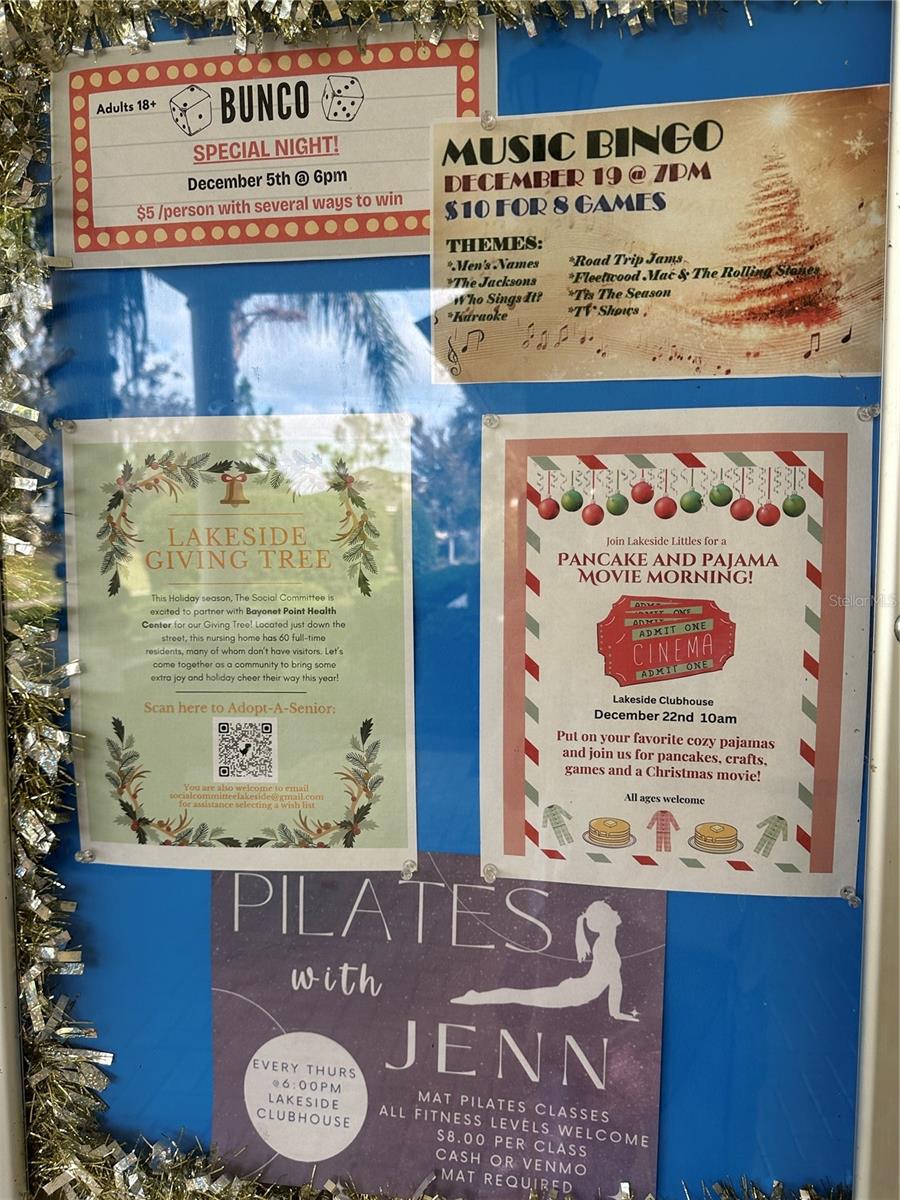 Adults 18+
BUNCO
SPECIAL NIGHT!
December 5th @ 6pm
$5 /person with several ways to win
MUSIC BINGO
DECEMBER 19 @ 7PM
$10 FOR 8 GAMES
THEMES:
*Men's Names
*The Jacksons
Who Sings It?
*Karaoke
*Road Trip Jams
*Fleetwood Mac & The Rolling Stones
*Tis The Season
*TV Shows
LAKESIDE
GIVING TREE
This Holiday season, The Social Committee is
excited to partner with Bayonet Point Health
Center for our Giving Tree! Located just down the
street, this nursing home has 60 full-time
residents, many of whom don't have visitors. Let's
come together as a community to bring some
extra joy and holiday cheer their way this year!
Scan here to Adopt-A-Senior:
You are also welcome to email
socialcommitteelakeside@gmail.com
for assistance selecting a wish list
Join Lakeside Littles for a
PANCAKE AND PAJAMA
MOVIE MORNING!
ADMIT ONE
ADMIT ONE
ADMIT ONE
CINEMA
ADMIT ONE
Lakeside Clubhouse
December 22nd 10am
Put on your favorite cozy pajamas
and join us for pancakes, crafts,
games and a Christmas movie!
All ages welcome
StellarMLS
PILATES
with
JENN
EVERY THURS
@6:00PM
LAKESIDE
CLUBHOUSE
MAT PILATES CLASSES
ALL FITNESS LEVELS WELCOME
$8.00 PER CLASS
CASH OR VENMO
MAT REQUIRED